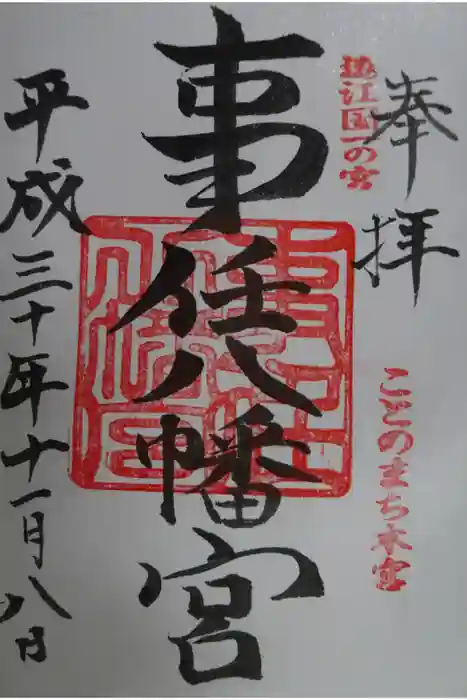 奉拝
遠江国一の宮
ことのまち本宮
事任八幡宮
平成三十年十一月八日